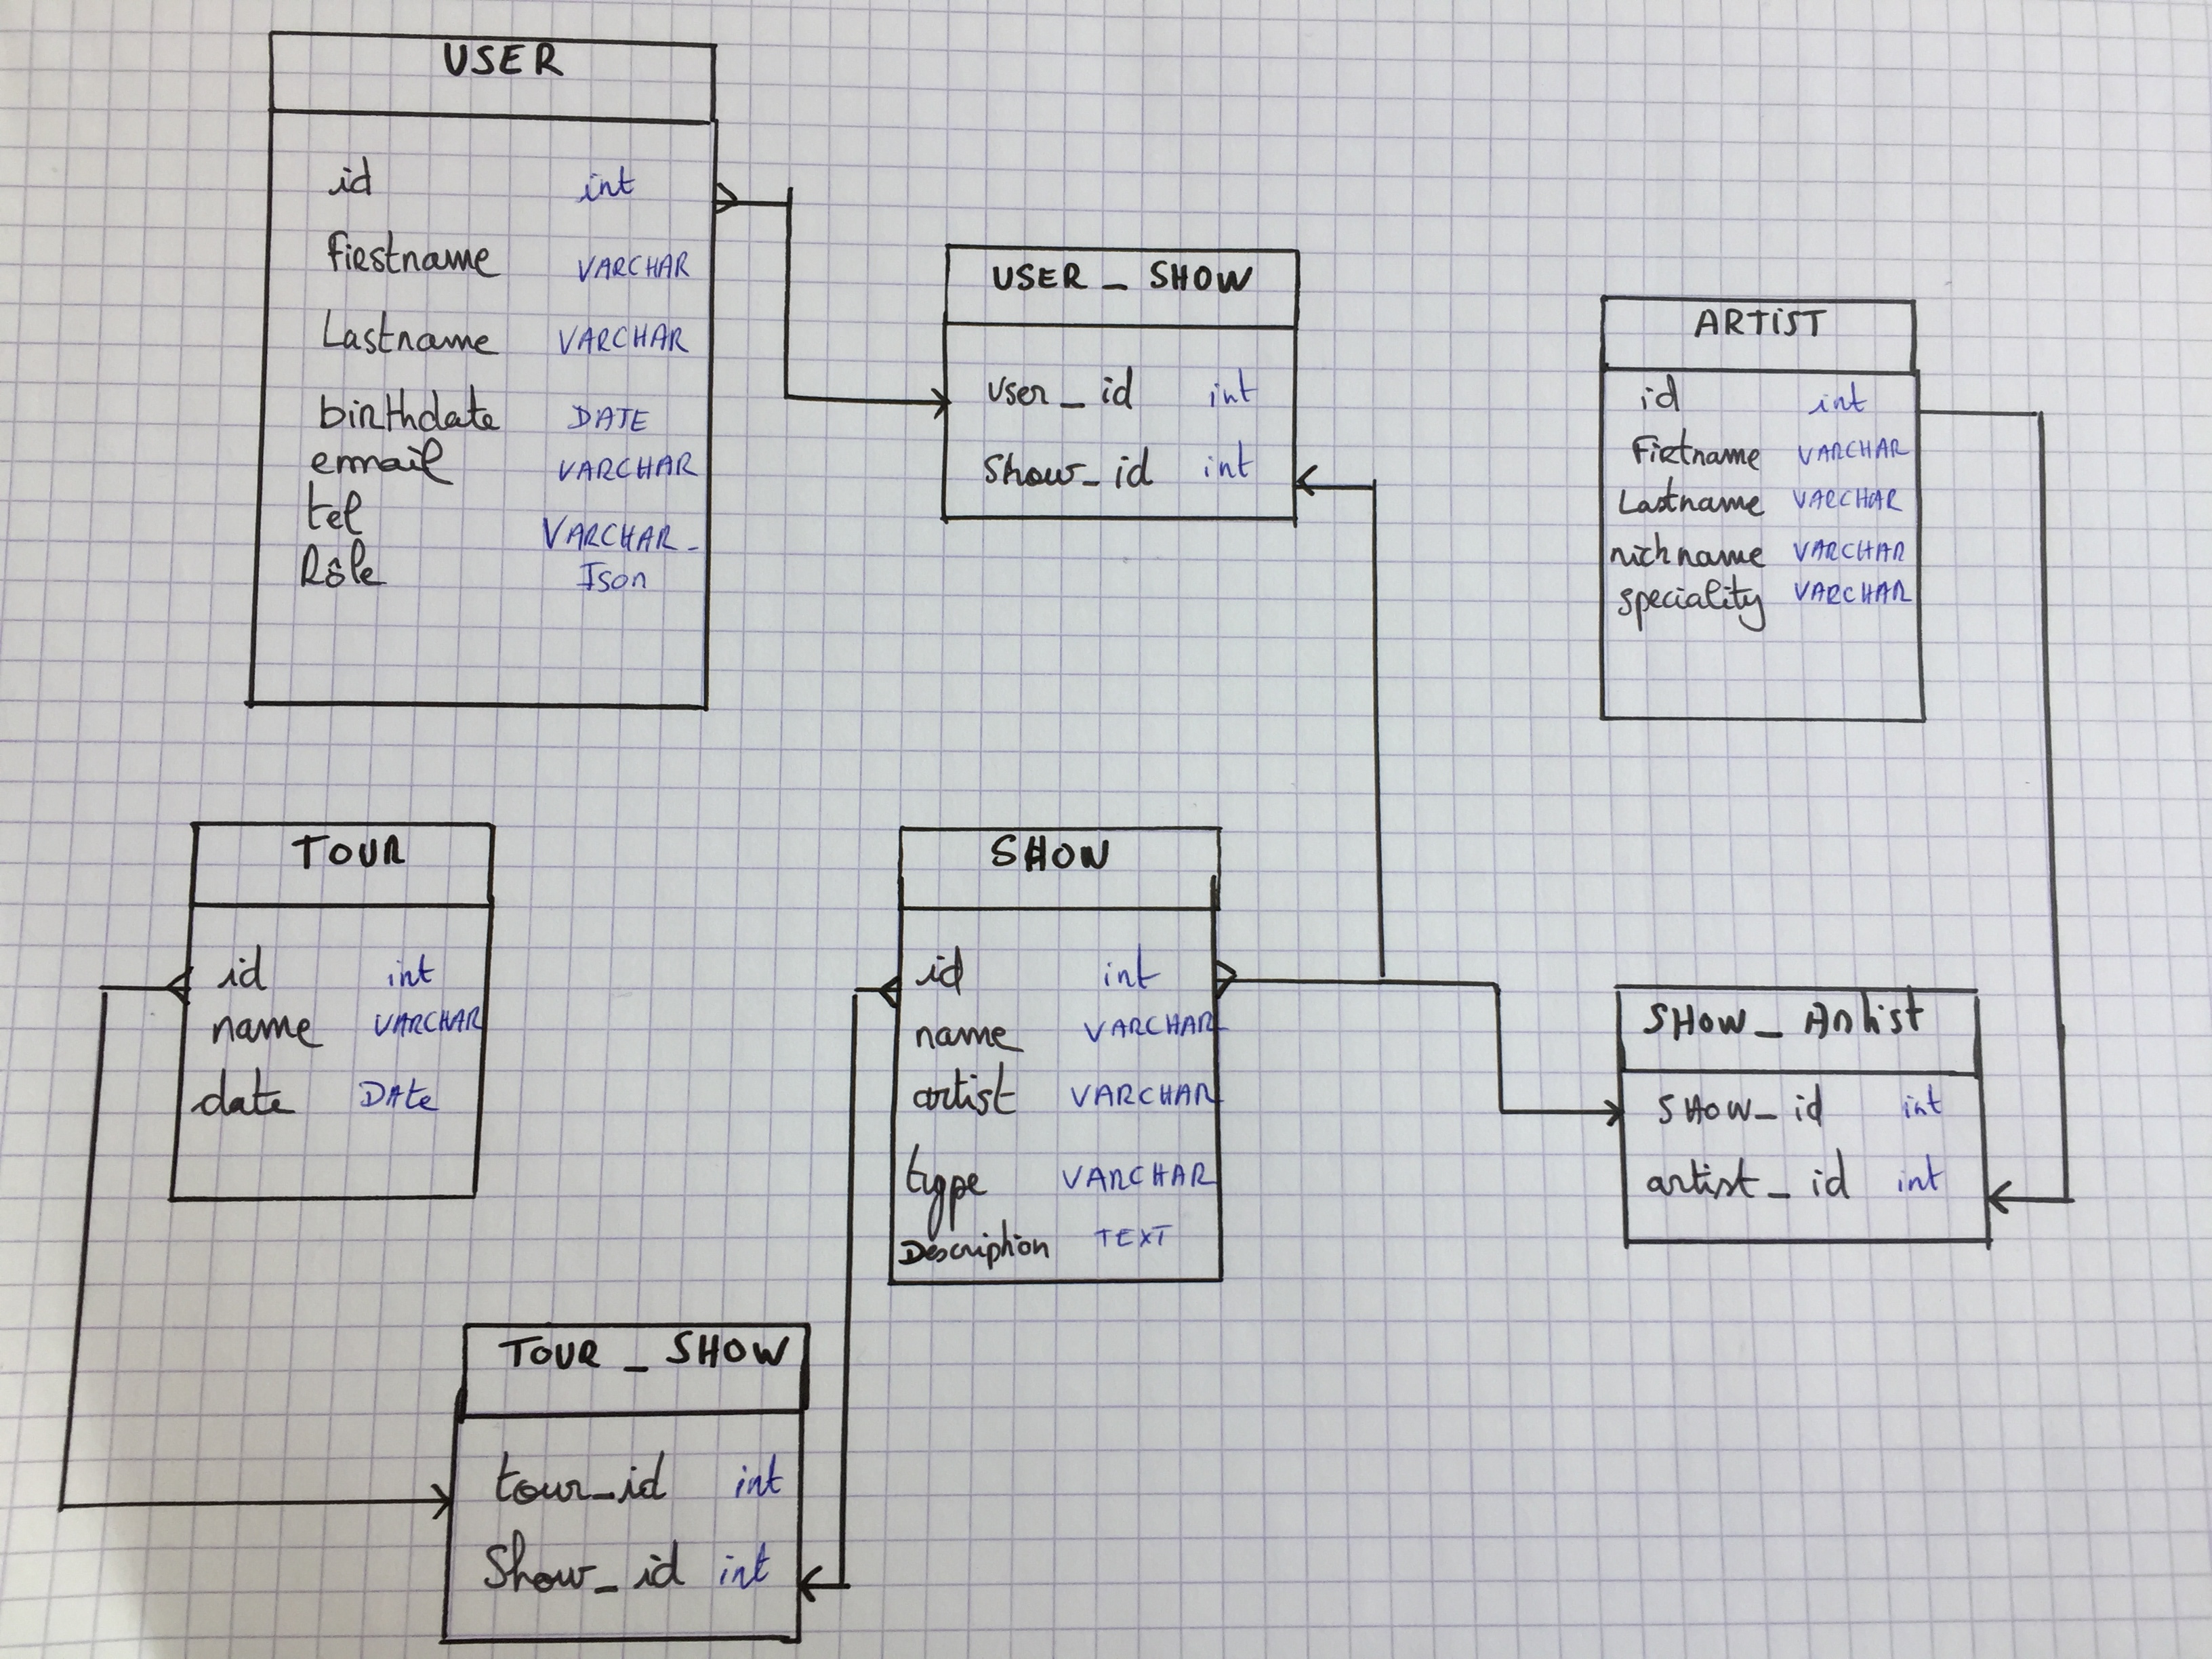 USER
id int
firstname VARCHAR
Lastname VARCHAR
birthdate DATE
email VARCHAR
tel VARCHAR
Rôle Json
USER_SHOW
user_id int
Show_id int
ARTiST
id int
Firtname VARCHAR
Lastname VARCHAR
nichname VARCHAR
speciality VARCHAR
TOUR
id int
name VARCHAR
date DAte
SHOW
id int
name VARCHAR
artist VARCHAR
type VARCHAR
Description TEXT
SHOW_Artist
SHOW_id int
artist_id int
TOUR_SHOW
tour_id int
Show_id int